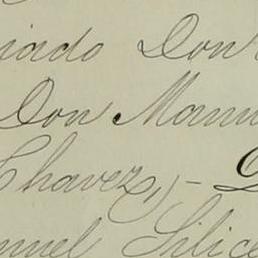 iado Don
Don Manu
Chavez,)-
nuel Silice